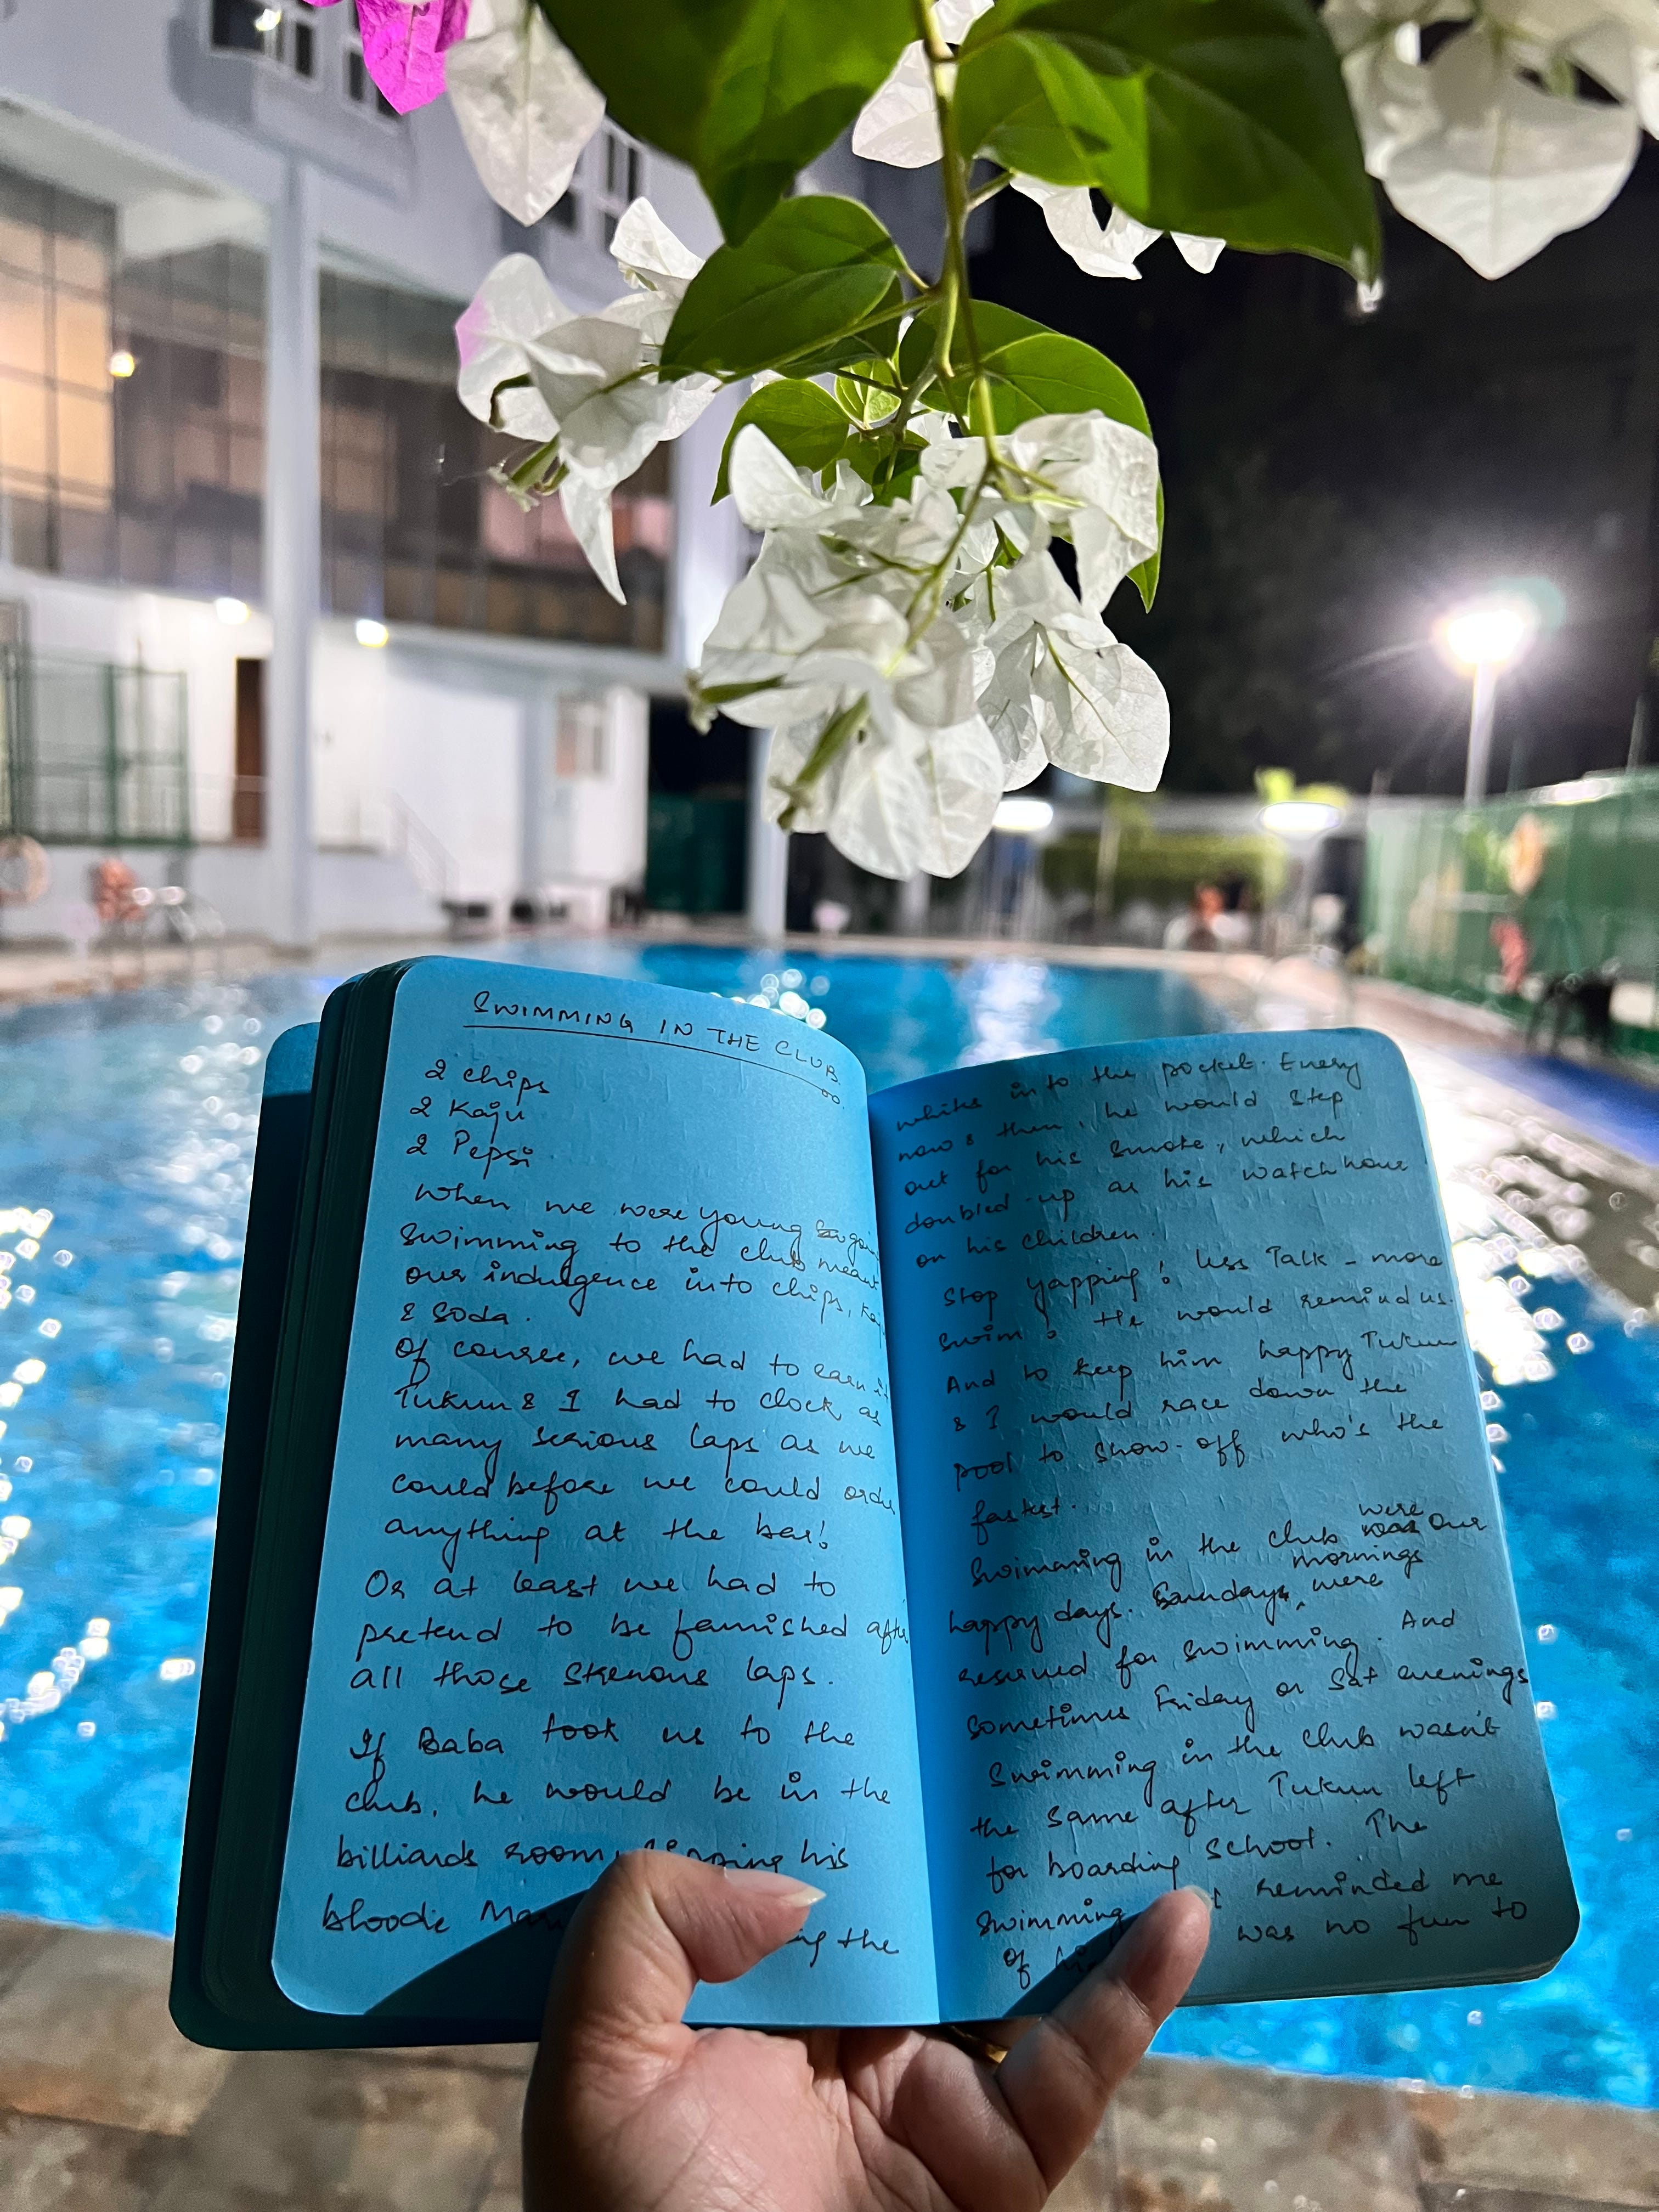 SWIMMING IN THE CLUB
2 chips
2 Kaju
2 Pepsi
When we were young goin
swimming to the club meant
our indulgence into chips, Kaj
& Soda.
Of course, we had to earn it
Tukun & I had to clock as
many serious laps as we
could before we could orde
anything at the bar!
Or at least we had to
pretend to be famished afte
all those strenous laps.
If Baba took us to the
club, he would be in the
billiards room, his
bloodie Mar the
whites into the pocket. Every
now & then, he would step
out for his smoke, which
doubled-up as his watch hour
on his children.
Stop yapping! Less Talk - more
swim! He would remind us.
And to keep him happy Tukun
& I would race down the
pool to show-off who's the
fastest.
Swimming in the club were our
happy days. Sundays mornings were
reserved for swimming. And
sometimes Friday or Sat evenings
Swimming in the club wasn't
the same after Tukun left
for boarding school. The
swimming reminded me
of was no fun to